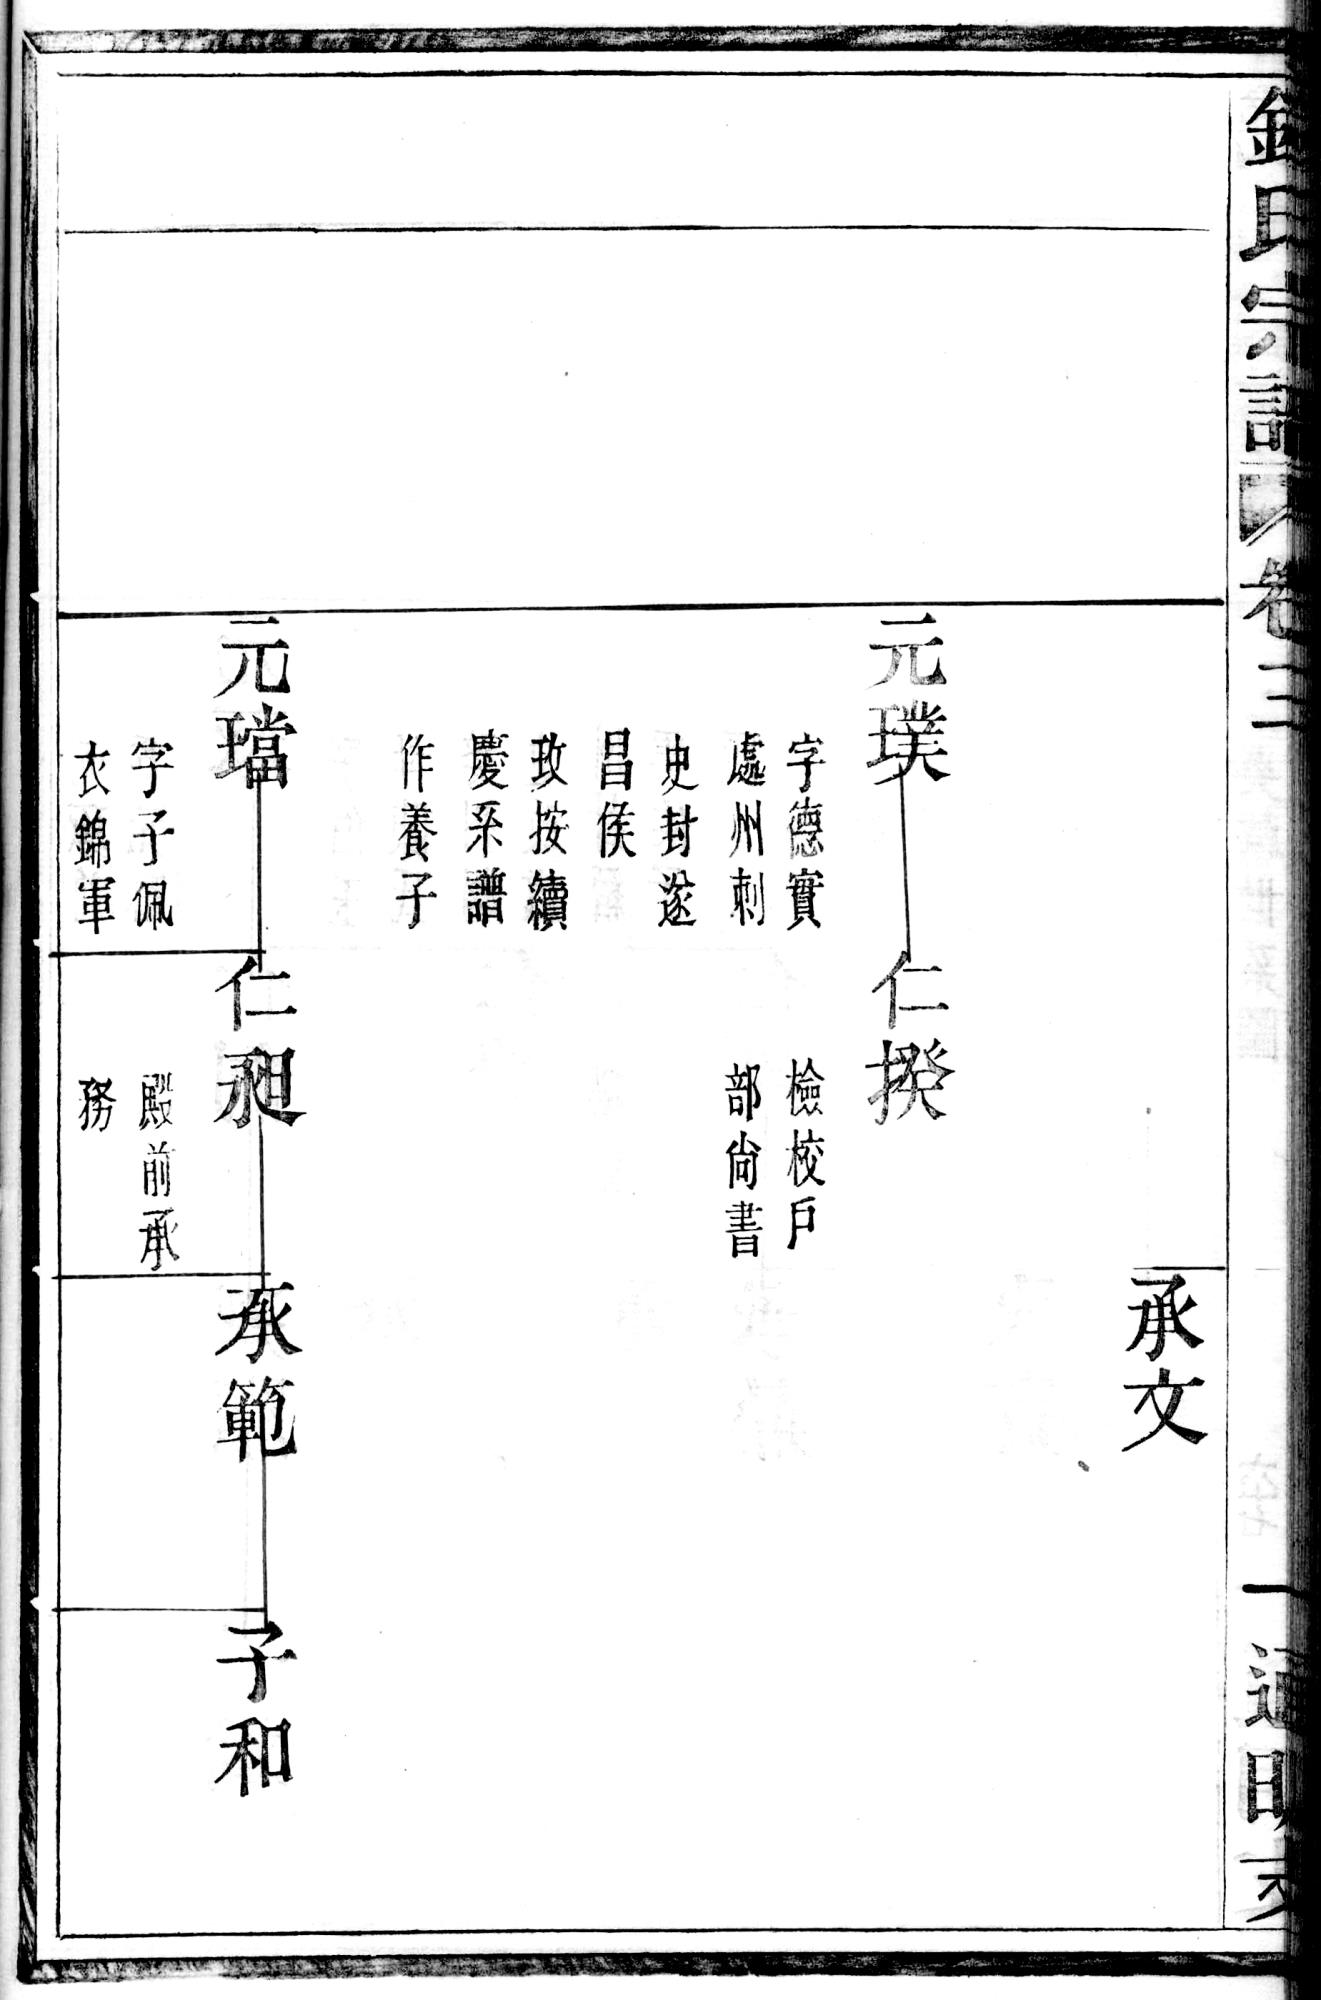 錢氏宗譜 卷三 一 通明支
承文
元璞
字德實
處州刺
史封遂
昌侯
攷按續
慶系譜
作養子
仁揆
檢校戶
部尚書
元璫
字子佩
衣錦軍
仁昶
殿前承
務
承範
子和